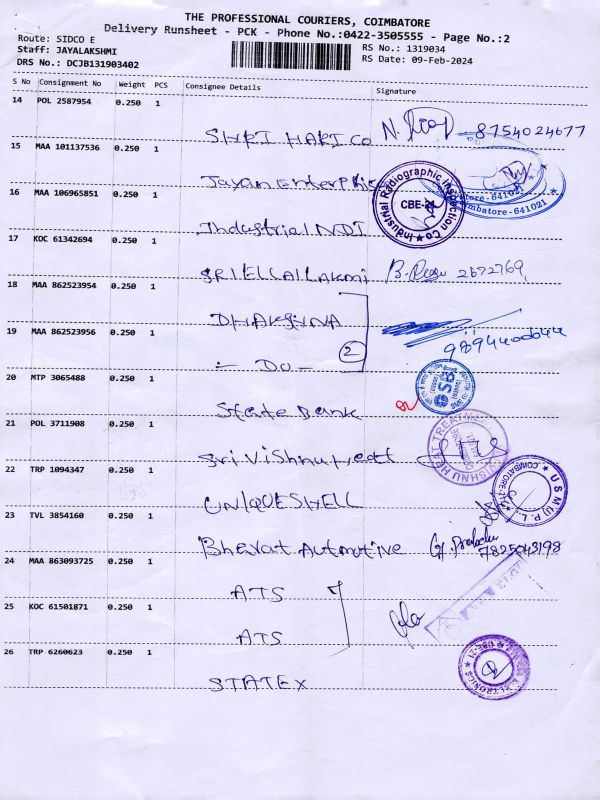 THE PROFESSIONAL COURIERS, COIMBATORE
Delivery Runsheet - PCK - Phone No.:0422-3505555 - Page No.:2
Route: SIDCO E
Staff: JAYALAKSHMI
DRS No.: DCJB131903402
RS No.: 1319034
RS Date: 09-Feb-2024
S No Consignment No Weight PCS Consignee Details Signature
14 POL 2587954 0.250 1
SHRI HARI CO 8754024677
15 MAA 101137536 0.250 1
Jayan Enterprise
Coimbatore-641021
16 MAA 106965851 0.250 1
Industrial NDT
Industrial Radiographic Inspection Co
CBE-21
17 KOC 61342694 0.250 1
SRI ELLAI Lakmi 2672769
18 MAA 862523954 0.250 1
DHAKSHNA
19 MAA 862523956 0.250 1
- DO - 2 9894400644
20 MTP 3065488 0.250 1
State Bank
21 POL 3711908 0.250 1
Sri Vishnu Heatt
VISHNU HEAT TREATMENT
22 TRP 1094347 0.250 1
UNIQUE SHELL
23 TVL 3854160 0.250 1
Bharat Automotive G. Prabhu
7825048198
24 MAA 863093725 0.250 1
ATS
25 KOC 61501871 0.250 1
ATS
26 TRP 6260623 0.250 1
STATEX